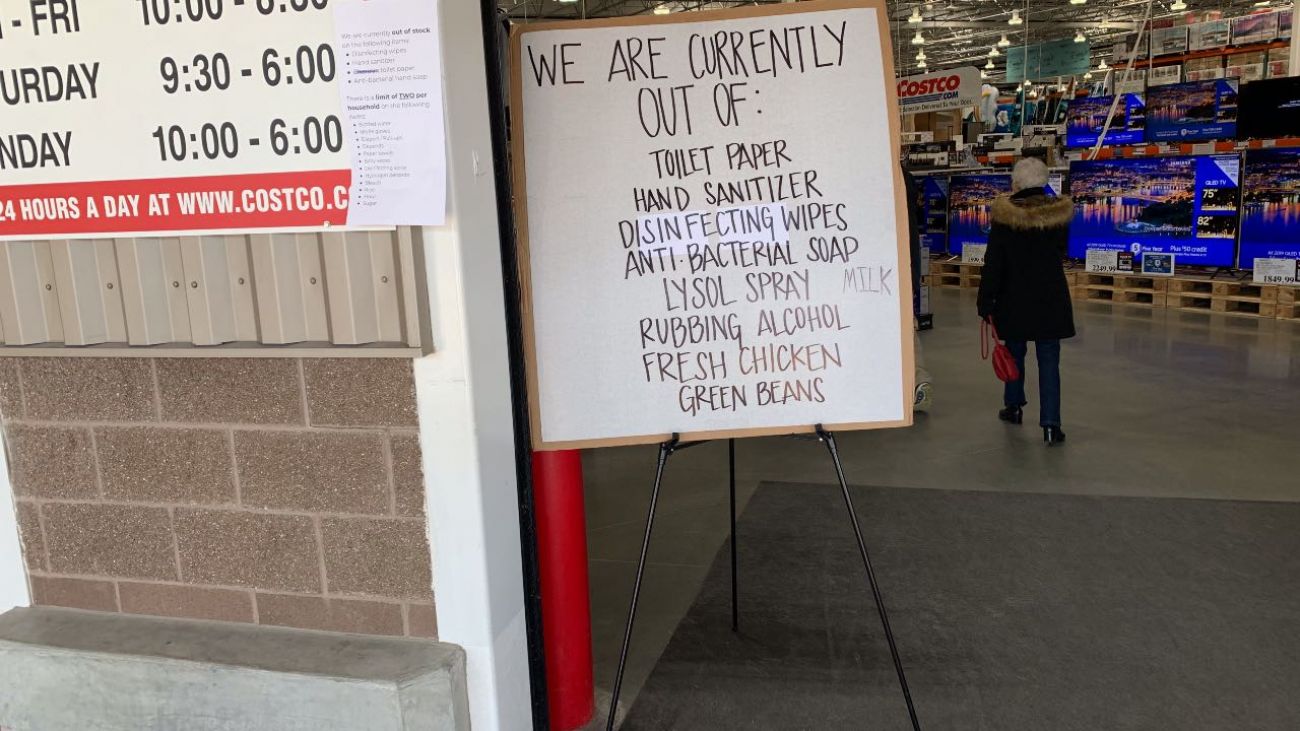 - FRI 10:00 - 8:30
URDAY 9:30 - 6:00
NDAY 10:00 - 6:00
24 HOURS A DAY AT WWW.COSTCO.C
We are currently out of stock
on the following items:
Disinfecting wipes
Hand sanitizer
toilet paper
Anti-bacterial hand soap
There is a limit of TWO per
household on the following
items:
Bottled water
Depends
Paper towels
Baby wipes
Hydrogen peroxide
Bleach
Rice
Flour
Sugar
WE ARE CURRENTLY
OUT OF:
TOILET PAPER
HAND SANITIZER
DISINFECTING WIPES
ANTI-BACTERIAL SOAP
LYSOL SPRAY MILK
RUBBING ALCOHOL
FRESH CHICKEN
GREEN BEANS
COSTCO
.COM
Delivered To Your Door
SAMSUNG
QLED TV
75"
82"
5 Year Plus $50 credit
2249.99
1849.99